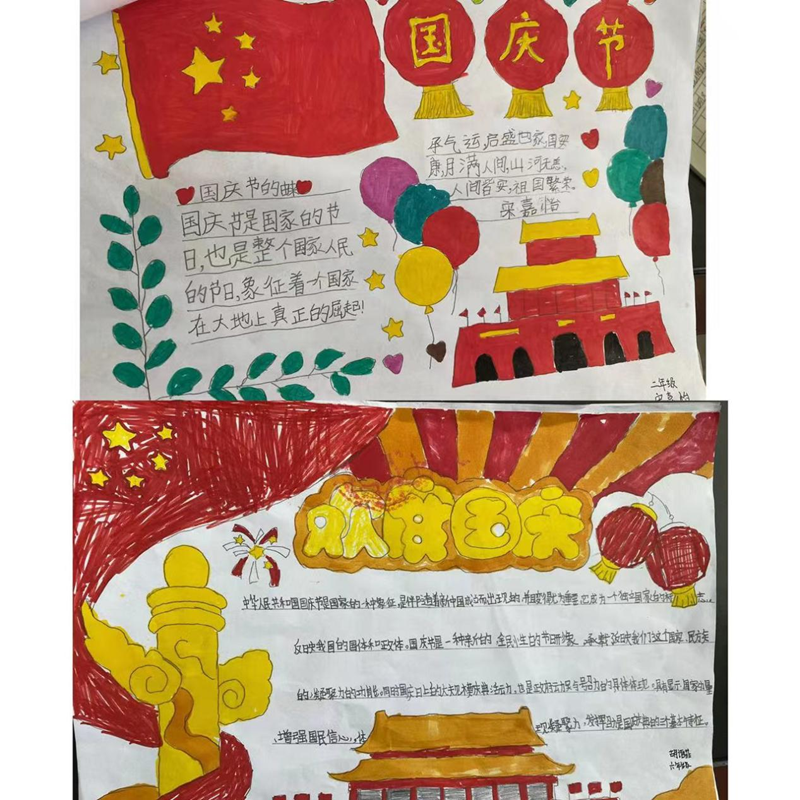 国庆节
承气运,启盛世家国安
康,月满人间,山河无恙,
人间皆安,祖国繁荣.
宋嘉怡
国庆节的
国庆节是国家的节
日,也是整个国家人民
的节日,象征着一个国家
在大地上真正的崛起!
二年级
宋嘉怡
欢度国庆
中华人民共和国国庆节是国家的一种象征,是伴随着新中国成立而出现的,并且变得尤为重要,它成为一个独立国家的标志,
反映我国的国体和政体。国庆节是一种新的、全民性的节日形式,承载了反映我们这个国家、民族
的凝聚力的功能。同时国庆日上的大规模庆典活动,也是政府动员与号召力的具体体现。显示国家力量
、增强国民信心,体现凝聚力,发挥号召力,即国庆庆典的三个基本特征。
六年级